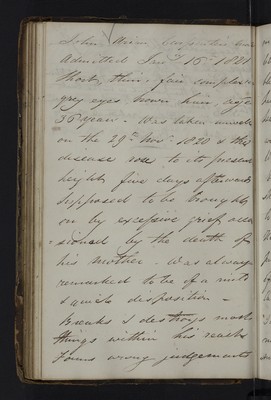 John
Admitted Jany 15th 1821
Short, thin, fair complexion
grey eyes brown hair, aged
35 years. Was taken unwell
on the 29th Novr 1820 & the
disease rose to its present
height five days afterwards
Supposed to be brought
on by excessive grief occa
sioned by the death of
his Mother. Was always
remarked to be of a mild
& amiable disposition -
Breaks & destroys most
things within his reach
Forms wrong judgements